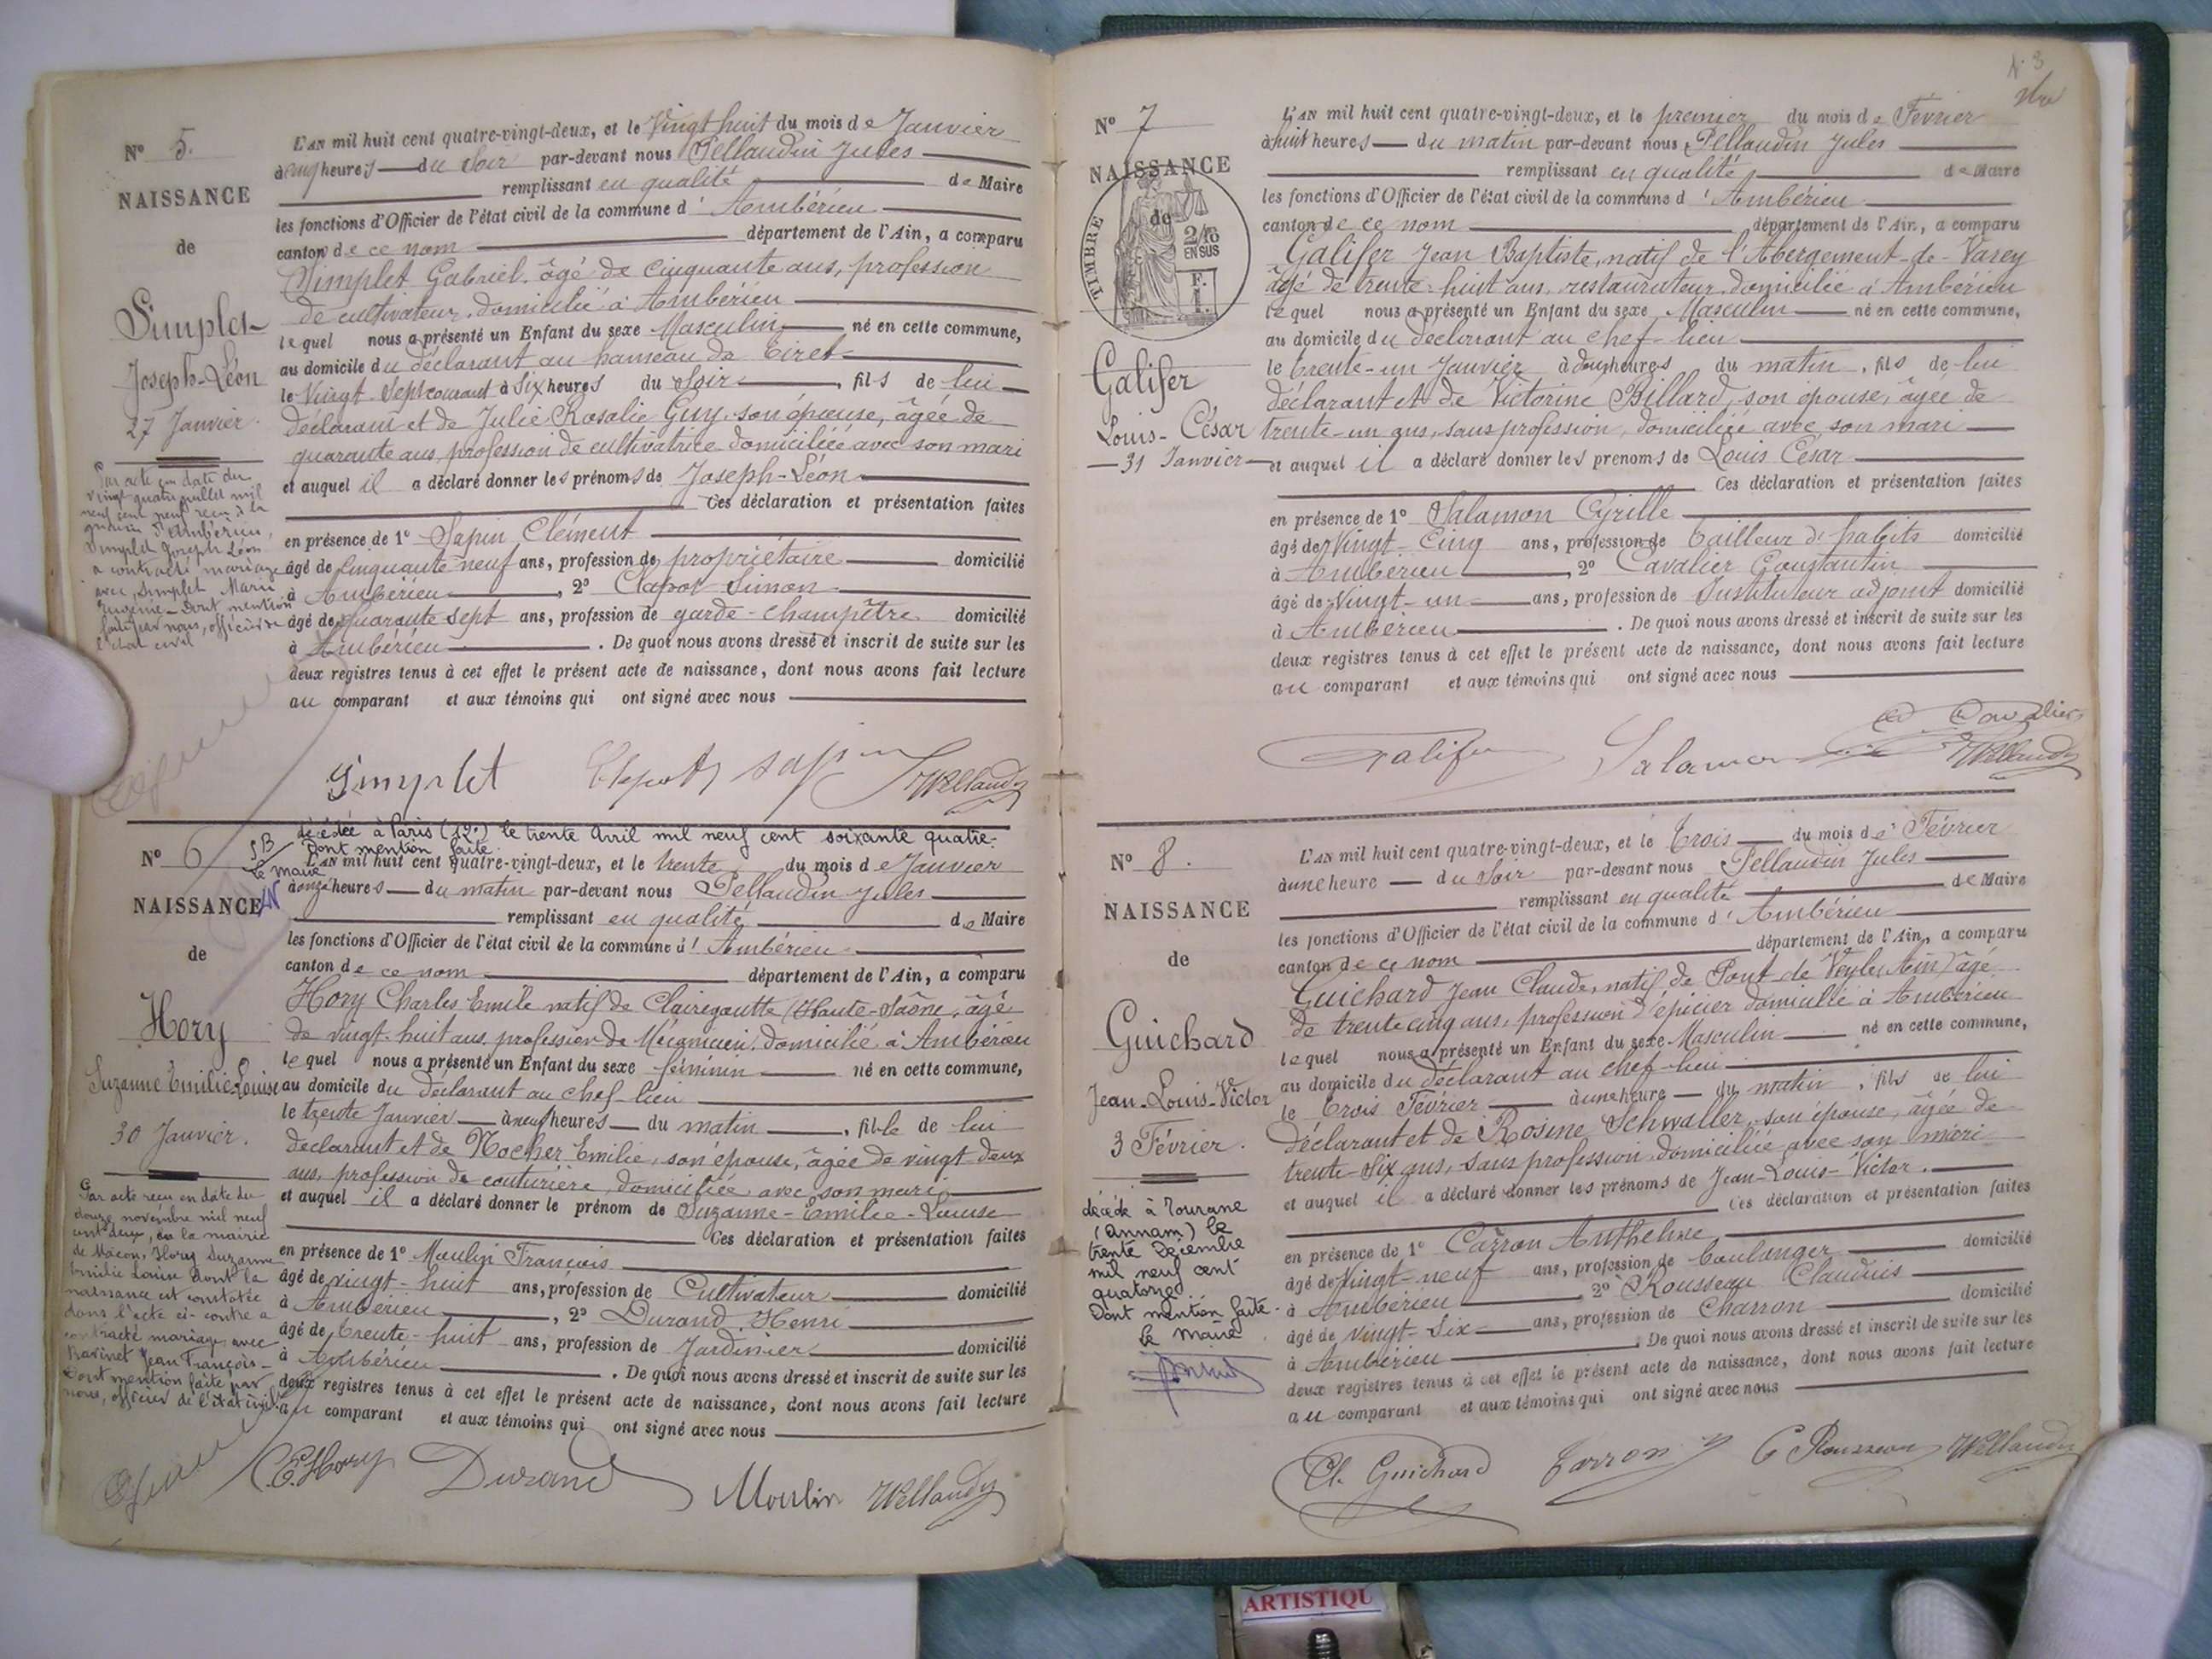 Nº 5.
NAISSANCE
de
Simplet
Joseph-Léon
27 Janvier.
Par acte en date du
vingt quatre juillet mil
neuf cent neuf reçu à la
mairie d'Ambérieu,
Simplet Joseph Léon
a contracté mariage
avec Simplet Marie
Eugénie - Dont mention
faite par nous, officier de
l'état civil
L'AN mil huit cent quatre-vingt-deux, et le Vingt huit du mois de Janvier
à cinq heures du Soir par-devant nous Pellaudin Jules
remplissant en qualité de Maire
les fonctions d'Officier de l'état civil de la commune d'Ambérieu
canton de ce nom département de l'Ain, a comparu
Simplet Gabriel, âgé de cinquante ans, profession
de cultivateur, domicilié à Ambérieu
lequel nous a présenté un Enfant du sexe Masculin né en cette commune,
au domicile du déclarant au hameau de Tiret
le Vingt Sept courant à Six heures du Soir, fils de lui
déclarant et de Julie Rosalie Guy, son épouse, âgée de
quarante ans, profession de cultivatrice domiciliée avec son mari
et auquel il a déclaré donner les prénoms de Joseph-Léon
Ces déclaration et présentation faites
en présence de 1º Sapin Clément
âgé de Cinquante neuf ans, profession de propriétaire domicilié
à Ambérieu, 2º Clapot Simon
âgé de quarante sept ans, profession de garde-champêtre domicilié
à Ambérieu. De quoi nous avons dressé et inscrit de suite sur les
deux registres tenus à cet effet le présent acte de naissance, dont nous avons fait lecture
au comparant et aux témoins qui ont signé avec nous
Simplet Clapot Sapin JPellaudin
décédée à Paris (12e) le trente Avril mil neuf cent soixante quatre.
Dont mention faite.
Le Maire
Nº 6
NAISSANCE
de
Hory
Suzanne Emilie-Louise
30 Janvier.
Par acte reçu en date du
douze novembre mil neuf
cent deux, en la mairie
de Mâcon, Hory Suzanne
Emilie Louise dont la
naissance est constatée
dans l'acte ci-contre a
contracté mariage avec
Ravinet Jean François -
Dont mention faite par
nous, officier de l'état civil
L'AN mil huit cent quatre-vingt-deux, et le trente du mois de Janvier
à onze heures du matin par-devant nous Pellaudin Jules
remplissant en qualité de Maire
les fonctions d'Officier de l'état civil de la commune d'Ambérieu
canton de ce nom département de l'Ain, a comparu
Hory Charles Emile natif de Clairegoutte (Haute-Saône, âgé
de vingt-huit ans, profession de Mécanicien, domicilié à Ambérieu
lequel nous a présenté un Enfant du sexe féminin né en cette commune,
au domicile du déclarant au chef-lieu
le trente Janvier à neuf heures du matin, fille de lui
déclarant et de Nocher Emilie, son épouse, âgée de vingt deux
ans, profession de couturière, domiciliée avec son mari
et auquel il a déclaré donner le prénom de Suzanne-Emilie-Louise
Ces déclaration et présentation faites
en présence de 1º Moulin François
âgé de vingt-huit ans, profession de Cultivateur domicilié
à Ambérieu, 2º Durand Henri
âgé de trente-huit ans, profession de Jardinier domicilié
à Ambérieu. De quoi nous avons dressé et inscrit de suite sur les
deux registres tenus à cet effet le présent acte de naissance, dont nous avons fait lecture
au comparant et aux témoins qui ont signé avec nous
CEHory Durand Moulin JPellaudin
Nº 7
NAISSANCE
de
TIMBRE
2/10
EN SUS
F.
1.
Galifer
Louis-César
31 Janvier
L'AN mil huit cent quatre-vingt-deux, et le premier du mois de Février
à huit heures du matin par-devant nous Pellaudin Jules
remplissant en qualité de Maire
les fonctions d'Officier de l'état civil de la commune d'Ambérieu
canton de ce nom département de l'Ain, a comparu
Galifer Jean Baptiste, natif de l'Abergement-de-Varey
âgé de trente-huit ans, restaurateur, domicilié à Ambérieu
lequel nous a présenté un Enfant du sexe Masculin né en cette commune,
au domicile du déclarant au chef-lieu
le trente-un Janvier à douze heures du matin, fils de lui
déclarant et de Victorine Billard, son épouse, âgée de
trente-un ans, sans profession, domiciliée avec son mari
et auquel il a déclaré donner les prénoms de Louis César
Ces déclaration et présentation faites
en présence de 1º Salamon Cyrille
âgé de Vingt-Cinq ans, profession de tailleur d'habits domicilié
à Ambérieu, 2º Cavalier Constantin
âgé de Vingt-un ans, profession de Instituteur adjoint domicilié
à Ambérieu. De quoi nous avons dressé et inscrit de suite sur les
deux registres tenus à cet effet le présent acte de naissance, dont nous avons fait lecture
au comparant et aux témoins qui ont signé avec nous
Galifer Salamon Cavalier JPellaudin
Nº 8.
NAISSANCE
de
Guichard
Jean-Louis-Victor
3 Février.
décédé à Tourane
(Annam) le
trente Décembre
mil neuf cent
quatorze.
Dont mention faite.
Le Maire
L'AN mil huit cent quatre-vingt-deux, et le trois du mois de Février
à une heure du Soir par-devant nous Pellaudin Jules
remplissant en qualité de Maire
les fonctions d'Officier de l'état civil de la commune d'Ambérieu
canton de ce nom département de l'Ain, a comparu
Guichard Jean Claude, natif de Pont de Veyle (Ain) âgé
de trente cinq ans, profession d'épicier domicilié à Ambérieu
lequel nous a présenté un Enfant du sexe Masculin né en cette commune,
au domicile du déclarant au chef-lieu
le trois Février à une heure du matin, fils de lui
déclarant et de Rosine Schwaller, son épouse, âgée de
trente-six ans, sans profession, domiciliée avec son mari
et auquel il a déclaré donner les prénoms de Jean-Louis-Victor.
Ces déclaration et présentation faites
en présence de 1º Carron Anthelme
âgé de Vingt-neuf ans, profession de boulanger domicilié
à Ambérieu 2º Rousseau Claudius
âgé de vingt-six ans, profession de Charron domicilié
à Ambérieu. De quoi nous avons dressé et inscrit de suite sur les
deux registres tenus à cet effet le présent acte de naissance, dont nous avons fait lecture
au comparant et aux témoins qui ont signé avec nous
Cl. Guichard Carron C Rousseau JPellaudin
ARTISTIQU